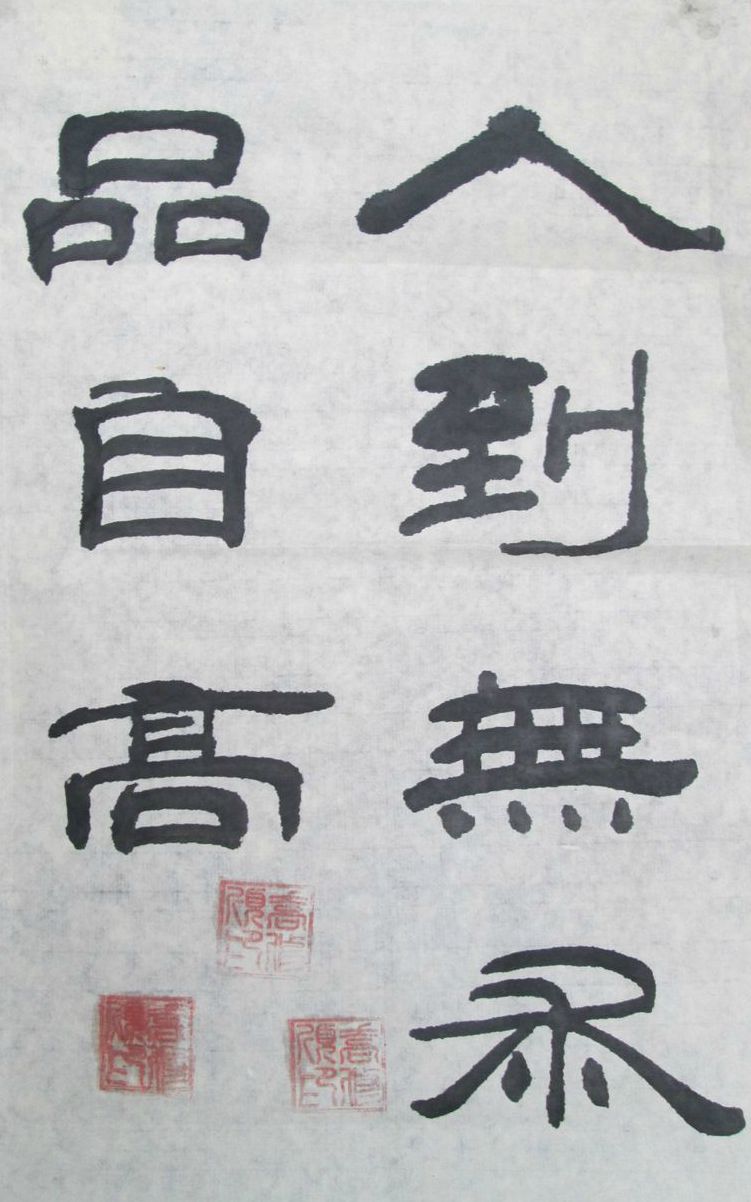 人到無求
品自高